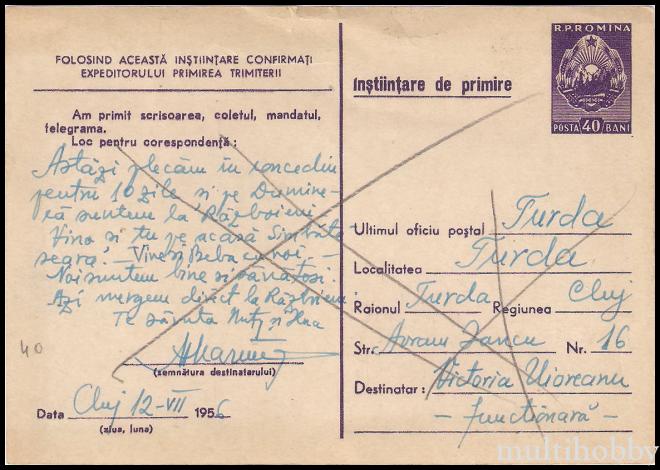 FOLOSIND ACEASTĂ INȘTIINȚARE CONFIRMAȚI
EXPEDITORULUI PRIMIREA TRIMITERII
Am primit scrisoarea, coletul, mandatul,
telegrama.
Loc pentru corespondență:
Astăzi plecăm în concediu
pentru 10 zile si pe Dumine-
că suntem la Războieni
Vino si tu pe acasă Sîmbăta
seara. Vine si Beba cu noi -
Noi suntem bine si sănătosi.
Azi mergem direct la Războieni
Te săruta
(semnătura destinatarului)
Data Cluj 12-VII 1956
(ziua, luna)
40
Inștiințare de primire
R.P.ROMINA
POSTA 40 BANI
Ultimul oficiu poștal Turda
Localitatea Turda
Raionul Turda Regiunea Cluj
Str. Avram Iancu Nr. 16
Destinatar: Victoria Uioreanu
- functionară -
multihobby